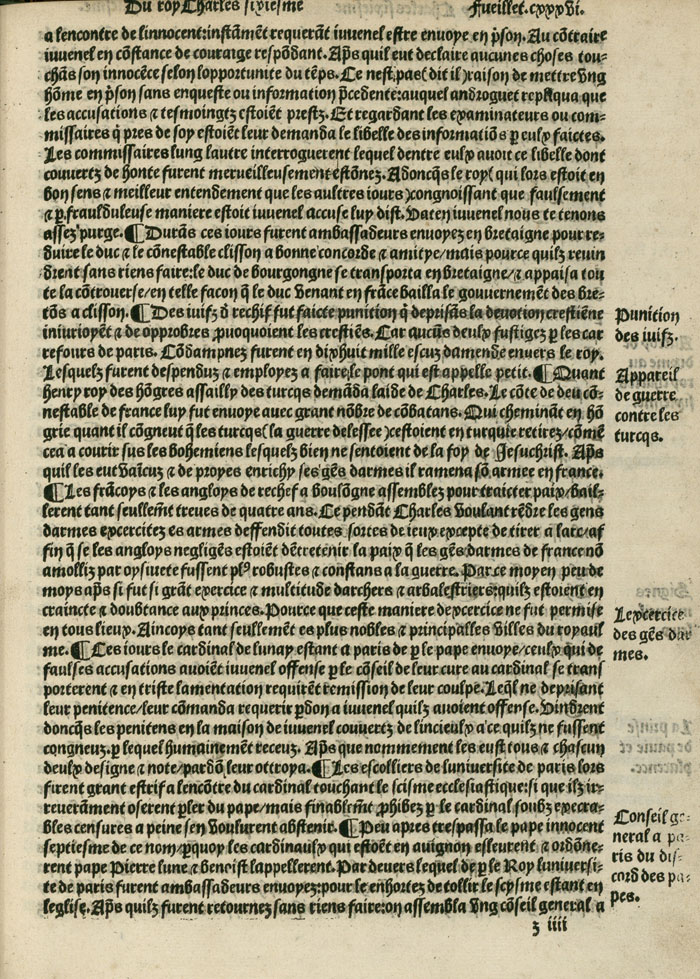 Du roy Charles sixiesme
Fueillet.cxxxvi.
a lencontre de linnocent:instāmēt requerāt iuuenel estre enuoye en p̄son. Au cōtraire
iuuenel en cōstance de couraige respōdant. Ap̄s quil eut declaire aucunes choses tou-
chās son innocēce selon lopportunite du tēps. Ce nest pas( dit il )raison de mettre vng
hōme en p̄son sans enqueste ou information p̄cedente:auquel androguet repliqua que
les accusations ⁊ tesmoingtz estoiēt prestz. Et regardant les examinateurs ou com-
missaires q̄ pres de soy estoiēt leur demanda le libelle des informatiōs ꝑ eulx faictes.
Les commissaires lung lautre interroguerent lequel dentre eulx auoit ce libelle dont
couuertz de honte furent merueilleusement estōnez. Adoncq̄s le roy( qui lors estoit en
bon sens ⁊ meilleur entendement que les aultres iours )congnoissant que faulsement
⁊ ꝑ fraulduleuse maniere estoit iuuenel accuse luy dist. Vaten iuuenel nous te tenons
assez purge. ¶ Durās ces iours furent ambassadeurs enuoyez en bretaigne pour re-
duire le duc ⁊ le cōnestable clisson a bonne concorde ⁊ amitye/mais pource quilz reuin
drent sans riens faire:le duc de bourgongne se transporta en bretaigne/⁊ appaisa tou
te la cōtrouerse/en telle facon q̄ le duc venant en frāce bailla le gouuernemēt des bre-
tōs a clisson. ¶ Des iuifz d̄ rechief fut faicte punition q̄ deprisās la deuotion crestiēne
iniurioyēt ⁊ de opprobres ꝓuoquoient les crestiēs. Car aucūs deulx fustigez ꝑ les car
refours de paris. Cōdampnez furent en dixhuit mille escuz damende enuers le roy.
Lesquelz furent despenduz ⁊ employez a faire le pont qui est appelle petit. ¶ Quant
henry roy des hōgres assailly des turcqs demāda laide de Charles. Le cōte de deu cō-
nestable de france luy fut enuoye auec grant nōbre de cōbatans. Qui chemināt en hō
grie quant il cōgneut q̄ les turcqs( la guerre delessee )cestoient en turquie retirez/cōmē
cea a courir sus les bohemiens lesquelz bien ne sentoient de la foy de Jesuchrist. Ap̄s
quil les eut vaīcuz ⁊ de proyes enrichy ses gēs darmes il ramena sō armee en france.
¶ Les frācoys ⁊ les angloys de rechef a boulōgne assemblez pour traicter paix/bail-
lerent tant seullem̄t treues de quatre ans. Ce pendāt Charles voulant rēdre les gens
darmes excercitez es armes deffendit toutes sortes de ieux excepte de tirer a larc/af
fin q̄ se les angloys negligēs estoiēt dētretenir la paix q̄ les gēs darmes de france nō
amolliz par oysiuete fussent plꝰ robustes ⁊ constans a la guerre. Par ce moyen peu de
moys ap̄s si fut si grāt exercice ⁊ multitude darchers ⁊ arbalestriers:quilz estoient en
craincte ⁊ doubtance aux princes. Pource que ceste maniere dexcercice ne fut permise
en tous lieux. Aincoys tant seullement es plus nobles ⁊ principalles villes du royaul
me. ¶ Ces iours le cardinal de lunay estant a paris de ꝑ le pape enuoye/ceulx qui de
faulses accusations auoiēt iuuenel offense ꝑ le cōseil de leur cure au cardinal se trans
porterent ⁊ en triste lamentation requirēt remission de leur coulpe. Leq̄l ne deprisant
leur penitence/leur cōmanda requerir ꝑdon a iuuenel quilz auoient offense. Vindrent
doncq̄s les penitens en la maison de iuuenel couuertz de lincieulx a ce quilz ne fussent
congneuz. ꝑ lequel humainemēt receuz. Ap̄s que nommement les eust tous ⁊ chascun
deulx designe ⁊ note/pardō leur ottroya. ¶ Les escolliers de luniuersite de paris lors
furent grant estrif a lencōtre du cardinal touchant le scisme ecclesiastique:si que ilz ir-
reuerāment oserent ꝑler du pape/mais finablem̄t ꝓhibez ꝑ le cardinal soubz execra-
bles censures a peine sen voulurent abstenir. ¶ Peu apres trespassa le pape innocent
septiesme de ce nom/ꝑquoy les cardinaulx qui estoēt en auignon esleurent ⁊ ordōne-
rent pape Pierre lune ⁊ benoist lappellerent. Par deuers lequel de ꝑ le Roy luniuersi-
te de paris furent ambassadeurs enuoyez:pour le enhortez de tollir le scysme estant en
leglise. Ap̄s quilz furent retournez sans riens faire:on assembla vng cōseil general a
z iiii
Punition
des iuifz.
Appareil
de guerre
contre les
turcqs.
Lexcercice
des gēs dar
mes.
Conseil ge-
neral a pa-
ris du dis-
cord des pa-
pes.